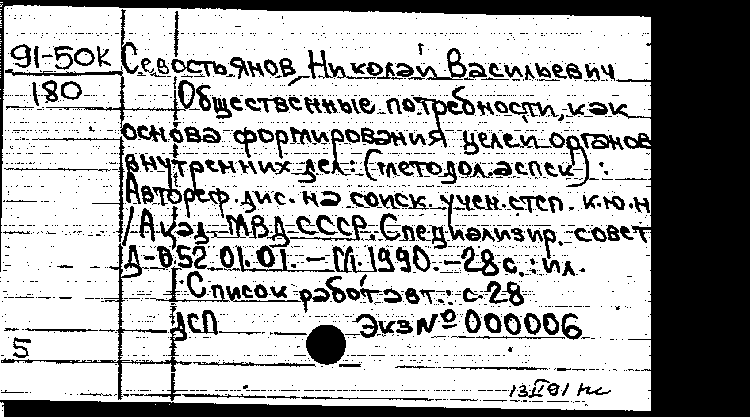 91-50к Севостьянов Николай Васильевич
180 Общественные потребности, как
основа формирования целей органов
внутренних дел: (методол. аспек) :
Автореф. дис. на соиск. учен. степ. к.ю.н
/Акад. МВД СССР. Специализир. совет
Д-052.01.01. – М. 1990. – 28 с. : ил.
Список работ авт.: с. 28
ДСП Экз № 000006
5
13 II 91